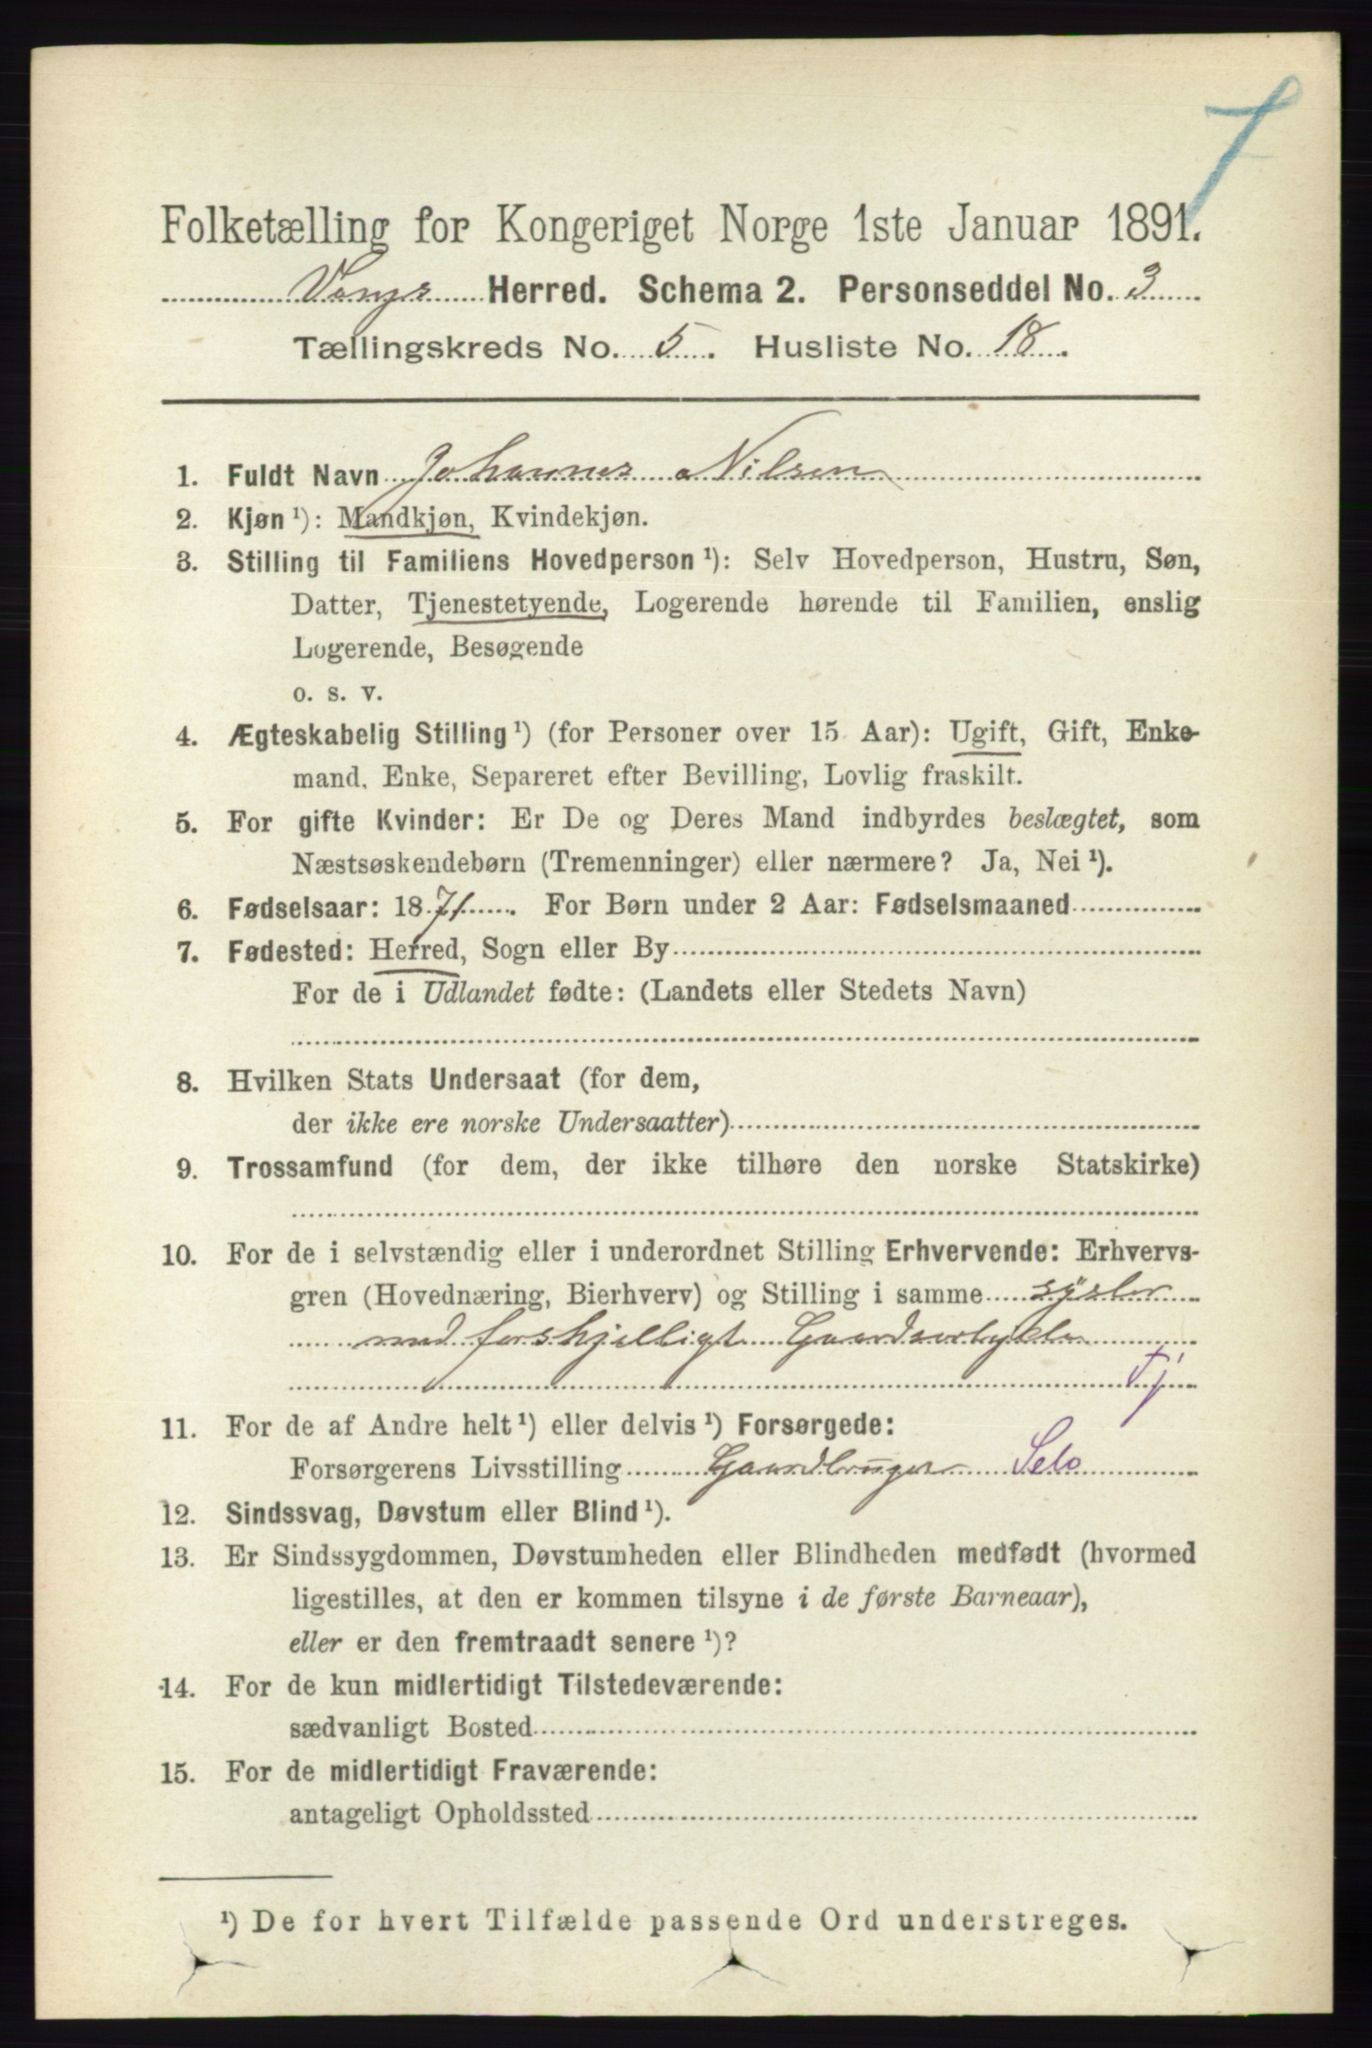 Folketælling for Kongeriget Norge 1ste Januar 1891.
Vangs Herred. Schema 2. Personseddel No. 3
Tællingskreds No. 5. Husliste No. 18.
1. Fuldt Navn Johannes Nilsen
2. Kjøn ¹): Mandkjøn, Kvindekjøn.
3. Stilling til Familiens Hovedperson ¹): Selv Hovedperson, Hustru, Søn,
Datter, Tjenestetyende, Logerende hørende til Familien, enslig
Logerende, Besøgende
o. s. v.
4. Ægteskabelig Stilling ¹) (for Personer over 15 Aar): Ugift, Gift, Enke-
mand, Enke, Separeret efter Bevilling, Lovlig fraskilt.
5. For gifte Kvinder: Er De og Deres Mand indbyrdes beslægtet, som
Næstsøskendebørn (Tremenninger) eller nærmere? Ja, Nei ¹).
6. Fødselsaar: 1871. For Børn under 2 Aar: Fødselsmaaned
7. Fødested: Herred, Sogn eller By
For de i Udlandet fødte: (Landets eller Stedets Navn)
8. Hvilken Stats Undersaat (for dem,
der ikke ere norske Undersaatter)
9. Trossamfund (for dem, der ikke tilhøre den norske Statskirke)
10. For de i selvstændig eller i underordnet Stilling Erhvervende: Erhvervs-
gren (Hovednæring, Bierhverv) og Stilling i samme sysler
med forskjelligt Gaardsarbeide
Tj
11. For de af Andre helt ¹) eller delvis ¹) Forsørgede:
Forsørgerens Livsstilling Gaardbruger Selv
12. Sindssvag, Døvstum eller Blind ¹).
13. Er Sindssygdommen, Døvstumheden eller Blindheden medfødt (hvormed
ligestilles, at den er kommen tilsyne i de første Barneaar),
eller er den fremtraadt senere ¹)?
14. For de kun midlertidigt Tilstedeværende:
sædvanligt Bosted
15. For de midlertidigt Fraværende:
antageligt Opholdssted
¹) De for hvert Tilfælde passende Ord understreges.